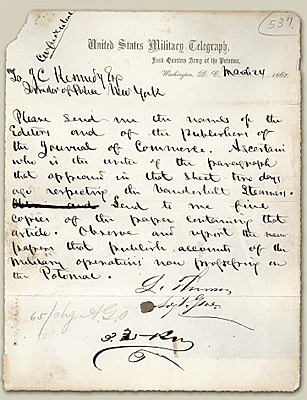 537
Confidential
United States Military Telegraph,
Head Quarters Army of the Potomac,
Washington, D. C. March 24 1862.
To J. C. Kennedy Esq
of Police New York
Please Send me the names of the
Editors and of the publishers of
the Journal of Commerce. Ascertain
who is the writer of the paragraph
that appeared in that Sheet two days
ago respecting the Vanderbilt Steamer.
Send to me five
copies of the paper containing that
article. Observe and report the news
papers that publish accounts of the
military operations now progressing on
the Potomac.
L. Thomas
Adjt. Gen
65/chg A.G.O